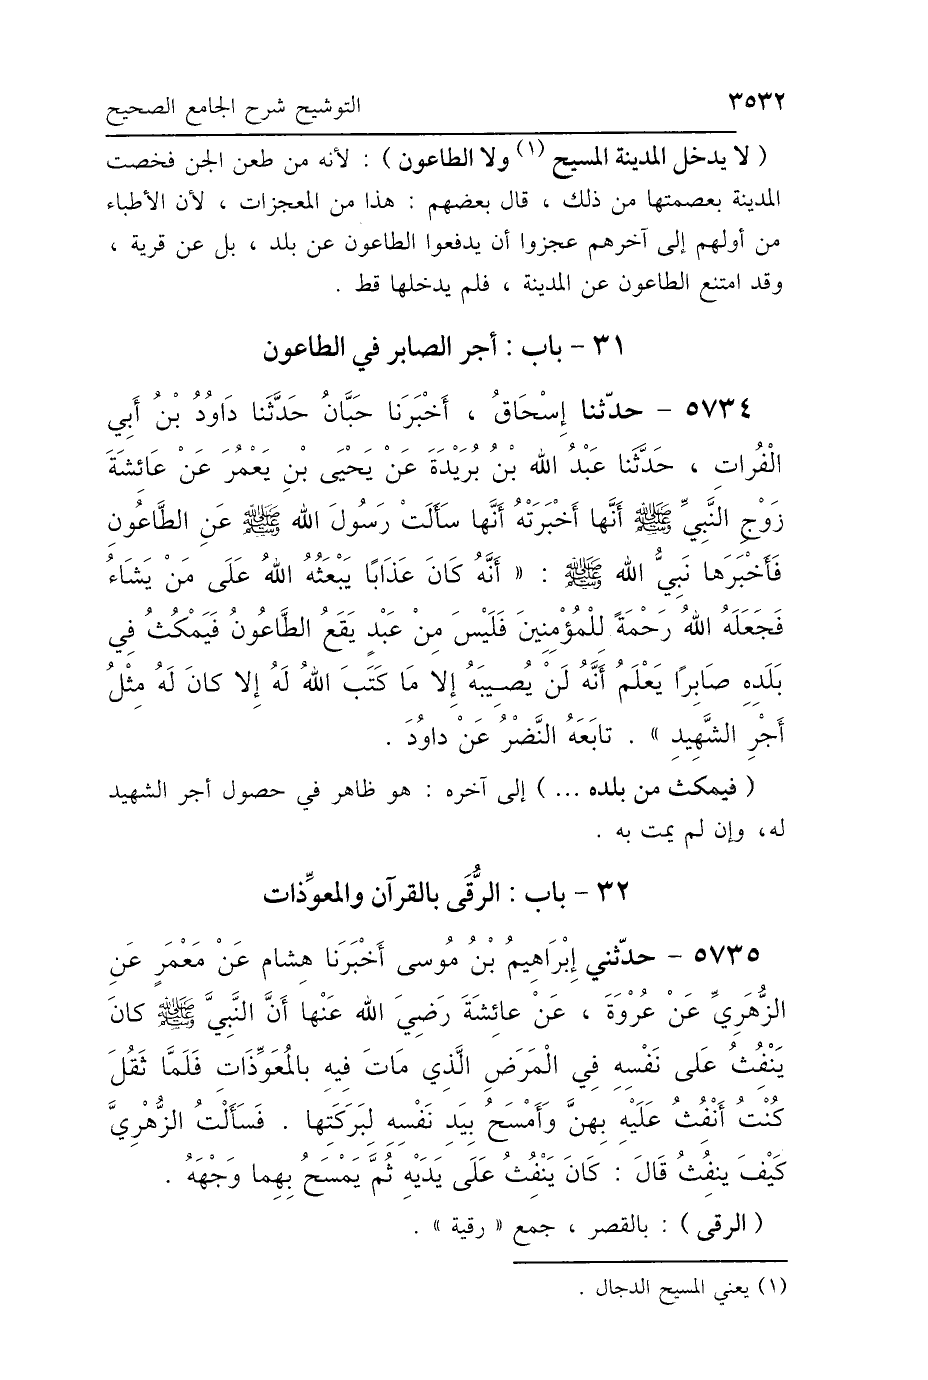 ٣٥٣٢ التوشيح شرح الجامع الصحيح
( لا يدخل المدينة المسيح (١) ولا الطاعون ) : لأنه من طعن الجن فخصت
المدينة بعصمتها من ذلك ، قال بعضهم : هذا من المعجزات ، لأن الأطباء
من أولهم إلى آخرهم عجزوا أن يدفعوا الطاعون عن بلد ، بل عن قرية ،
وقد امتنع الطاعون عن المدينة ، فلم يدخلها قط .
٣١ - باب : أجر الصابر في الطاعون
٥٧٣٤ - حدّثنا إِسْحَاقُ ، أَخْبَرَنا حَبَّانُ حَدَّثَنا دَاوُدُ بْنُ أَبي
الْفُراتِ ، حَدَّثَنا عَبْدُ الله بْنُ بُرَيْدَةَ عَنْ يَحْيَى بْنِ يَعْمُرَ عَنْ عَائِشَةَ
زَوْجِ النَّبيِّ ﷺ أَنَّها أَخْبَرَتْهُ أَنَّها سَأَلَتْ رَسُولَ الله ﷺ عَنِ الطَّاعُونِ
فَأَخْبَرَها نَبيُّ الله ﷺ : « أَنَّهُ كَانَ عَذَابًا يَبْعَثُهُ اللهُ عَلَى مَنْ يَشَاءُ
فَجَعَلَهُ اللهُ رَحْمَةً لِلْمُؤْمِنِينَ فَلَيْسَ مِنْ عَبْدٍ يَقَعُ الطَّاعُونُ فَيَمْكُثُ في
بَلَدِهِ صَابِراً يَعْلَمُ أَنَّهُ لَنْ يُصِيبَهُ إِلا مَا كَتَبَ اللهُ لَهُ إِلا كانَ لَهُ مِثْلُ
أَجْرِ الشَّهِيدِ » . تابَعَهُ النَّضْرُ عَنْ داوُدَ .
( فيمكث من بلده ... ) إلى آخره : هو ظاهر في حصول أجر الشهيد
له، وإن لم يمت به .
٣٢ - باب : الرُّقَى بالقرآن والمعوِّذات
٥٧٣٥ - حدّثني إِبْرَاهِيمُ بْنُ مُوسى أَخْبَرَنا هِشام عَنْ مَعْمَرٍ عَنِ
الزُّهَرِيِّ عَنْ عُرْوَةَ ، عَنْ عائِشَةَ رَضِيَ الله عَنْها أَنَّ النَّبيَّ ﷺ كانَ
يَنْفُثُ عَلَى نَفْسِهِ فِي الْمَرَضِ الَّذِي مَاتَ فِيهِ بالْمُعَوِّذَاتِ فَلَمَّا ثَقُلَ
كُنْتُ أَنْفُثُ عَلَيْهِ بِهِنَّ وَأَمْسَحُ بِيَدِ نَفْسِهِ لِبَرَكَتِها . فَسَأَلْتُ الزُّهْرِيَّ
كَيْفَ ينفُثُ قَالَ : كَانَ يَنْفُثُ عَلَى يَدَيْهِ ثُمَّ يَمْسَحُ بِهِما وَجْهَهُ .
( الرقى ) : بالقصر ، جمع « رقية » .
(١) يعني المسيح الدجال .